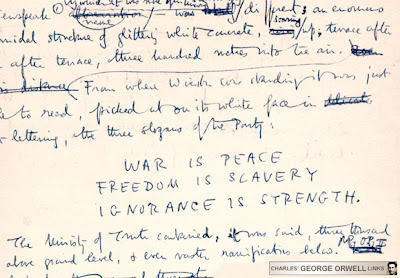 newspeak was different; an enormous
pyramidal structure of glittering white concrete, soaring up, terrace after
after terrace, three hundred metres into the air.
From where Winston was standing it was just
to read, picked out on its white face in
lettering, the three slogans of the Party:
WAR IS PEACE
FREEDOM IS SLAVERY
IGNORANCE IS STRENGTH.
The Ministry of Truth contained, it was said, three thousand
above ground level, & even vaster ramifications below.
CHARLES' GEORGE ORWELL LINKS